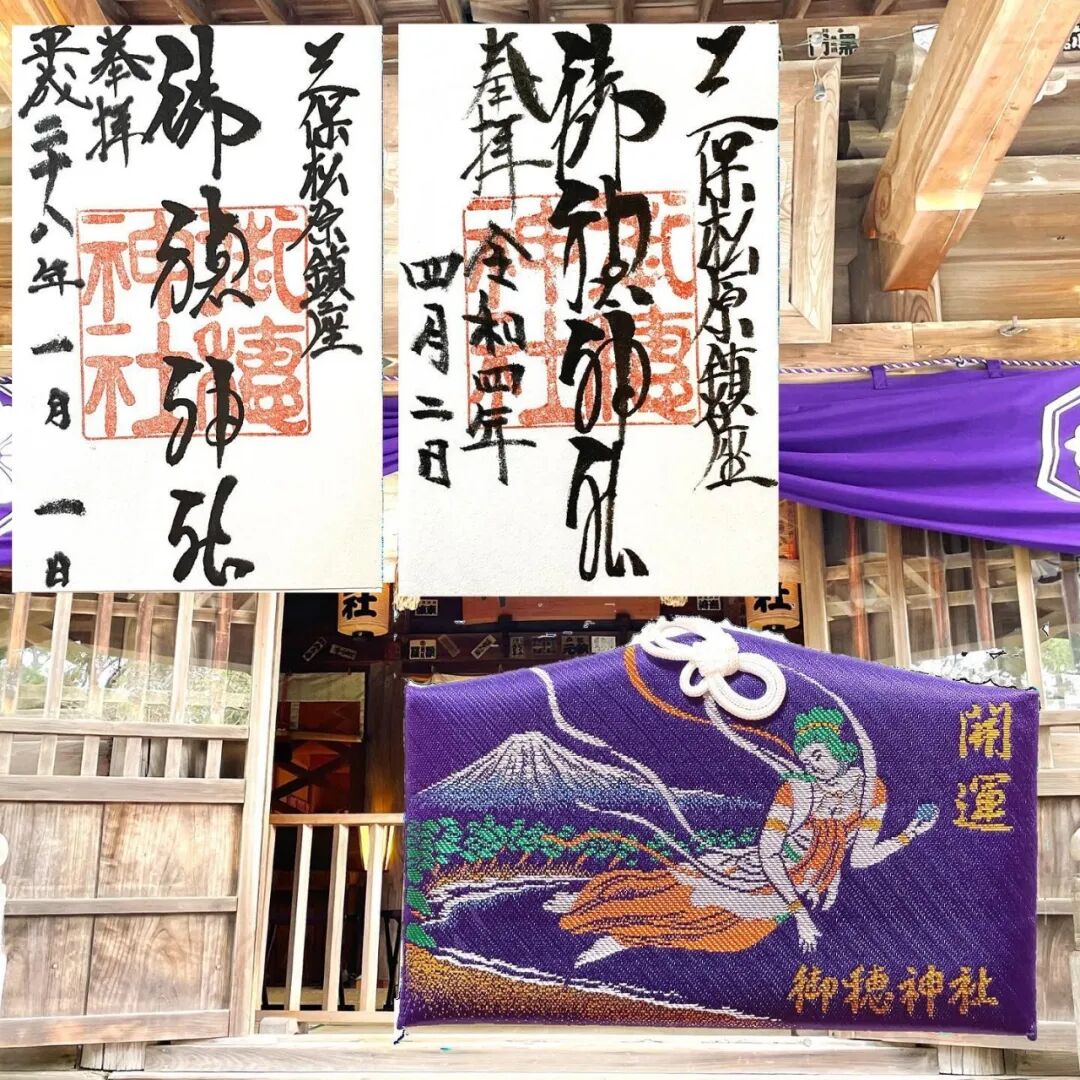 三保松原鎮座
御穂神社
奉拝
平成二十八年一月一日
御穗神社
三保松原鎮座
御穂神社
奉拝
令和四年
四月二日
御穗神社
開運
御穂神社
社
社